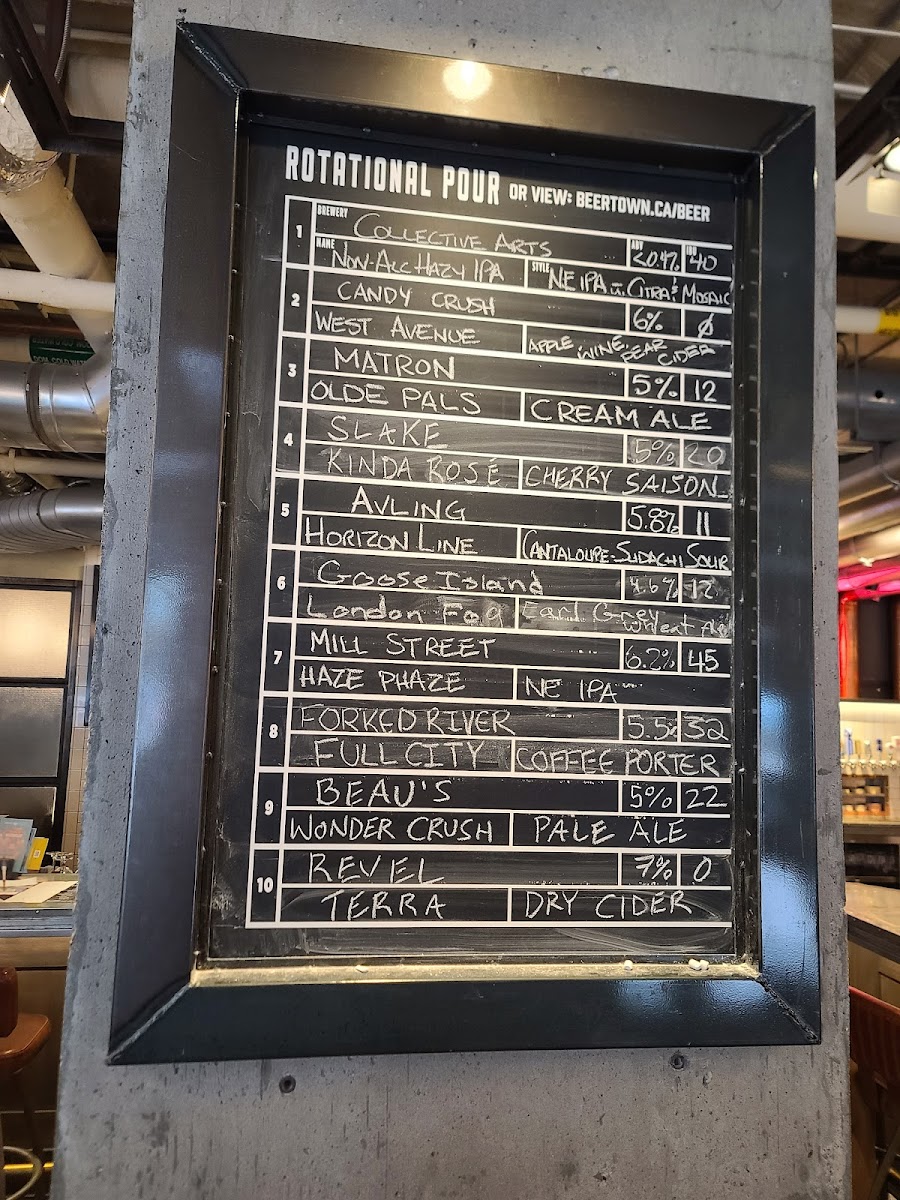 ROTATIONAL POUR OR VIEW: BEERTOWN.CA/BEER
1 BREWERY COLLECTIVE ARTS ABV <0.4% IBU 40
NAME NON-ALC HAZY IPA STYLE NEIPA w. CITRA & MOSAIC
2 CANDY CRUSH 6% Ø
WEST AVENUE APPLE, WINE, PEAR CIDER
3 MATRON 5% 12
OLDE PALS CREAM ALE
4 SLAKE 5% 20
KINDA ROSÉ CHERRY SAISON
5 AVLING 5.8% 11
HORIZON LINE CANTALOUPE-SUDACHI SOUR
6 Goose Island 4.6% 12
London Fog Earl Grey Wheat Ale
7 MILL STREET 6.2% 45
HAZE PHAZE NE IPA
8 FORKED RIVER 5.5% 32
FULL CITY COFFEE PORTER
9 BEAU'S 5% 22
WONDER CRUSH PALE ALE
10 REVEL 7% 0
TERRA DRY CIDER